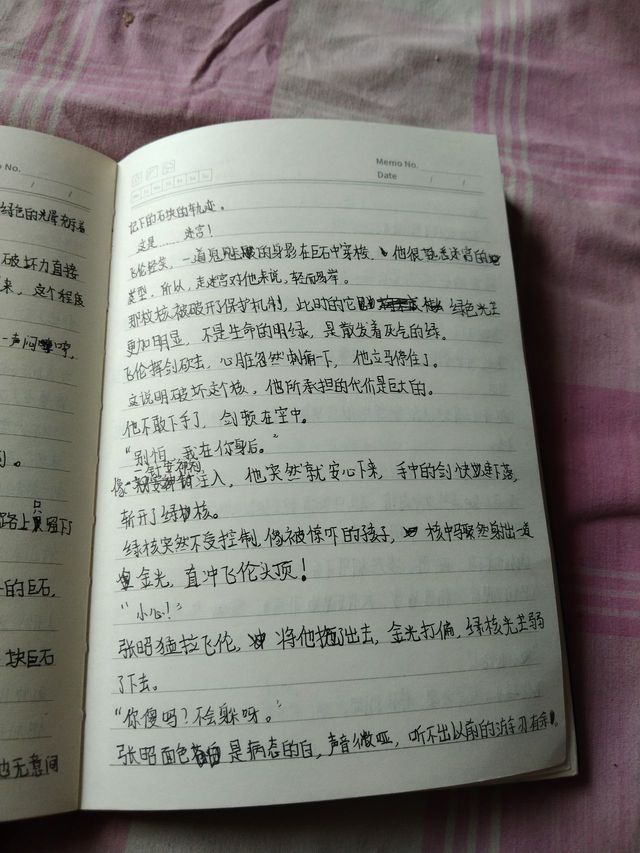 o No.
/ /
绿色的光晕充斥着
破坏力直接
来，这个程度
一声闷哼，
路上只留下
的巨石，
块巨石
也无意间
Memo No.
Date / /
Mo Tu We Th Fr Sa Su
记下的石块的轨迹。
这是……迷宫！
飞伦轻笑，一道鬼魅的身影在巨石中穿梭，他很熟悉迷宫的
类型，所以，走迷宫对他来说，轻而易举。
那枚核被破开了保护机制，此时的它绿色光芒
更加明显，不是生命的明绿，是散发着灰气的绿。
飞伦挥剑砍去，心脏忽然刺痛一下，他立马停住了。
这说明破坏这个核，他所承担的代价是巨大的。
他不敢下手了，剑顿在空中。
“别怕，我在你身后。”
像一针安神剂注入，他突然就安心下来，手中的剑快速落，
斩开了绿核。
绿核突然不受控制，像被惊吓的孩子，核中骤然射出一道
金光，直冲飞伦头顶！
“小心！”
张昭猛拉飞伦，将他拖了出去，金光打偏，绿核光芒弱
了下去。
“你傻吗？不会躲呀。”
张昭面色是病态的白，声音微哑，听不出以前的游刃有余。